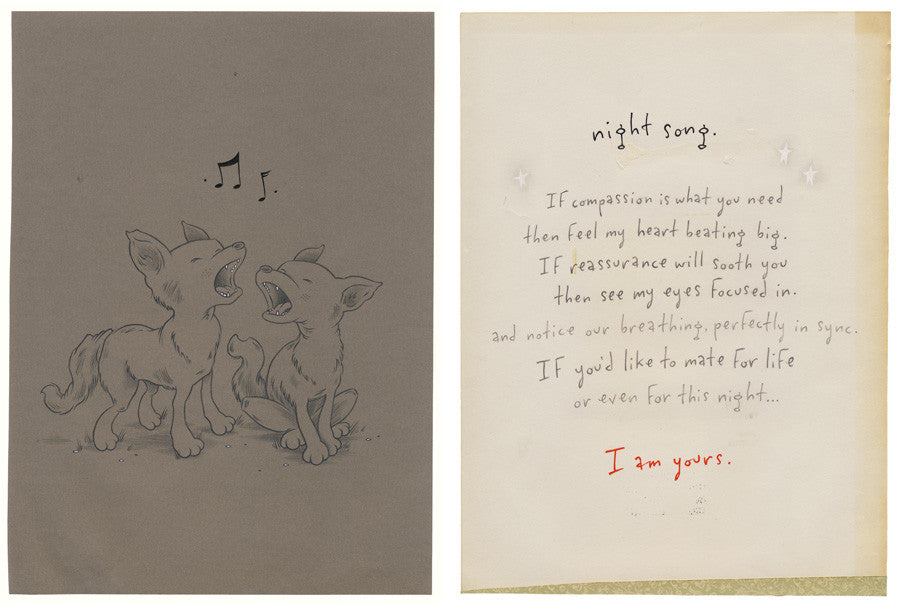 night song.
If compassion is what you need
then feel my heart beating big.
If reassurance will sooth you
then see my eyes focused in.
and notice our breathing, perfectly in sync.
If you'd like to mate for life
or even for this night...
I am yours.